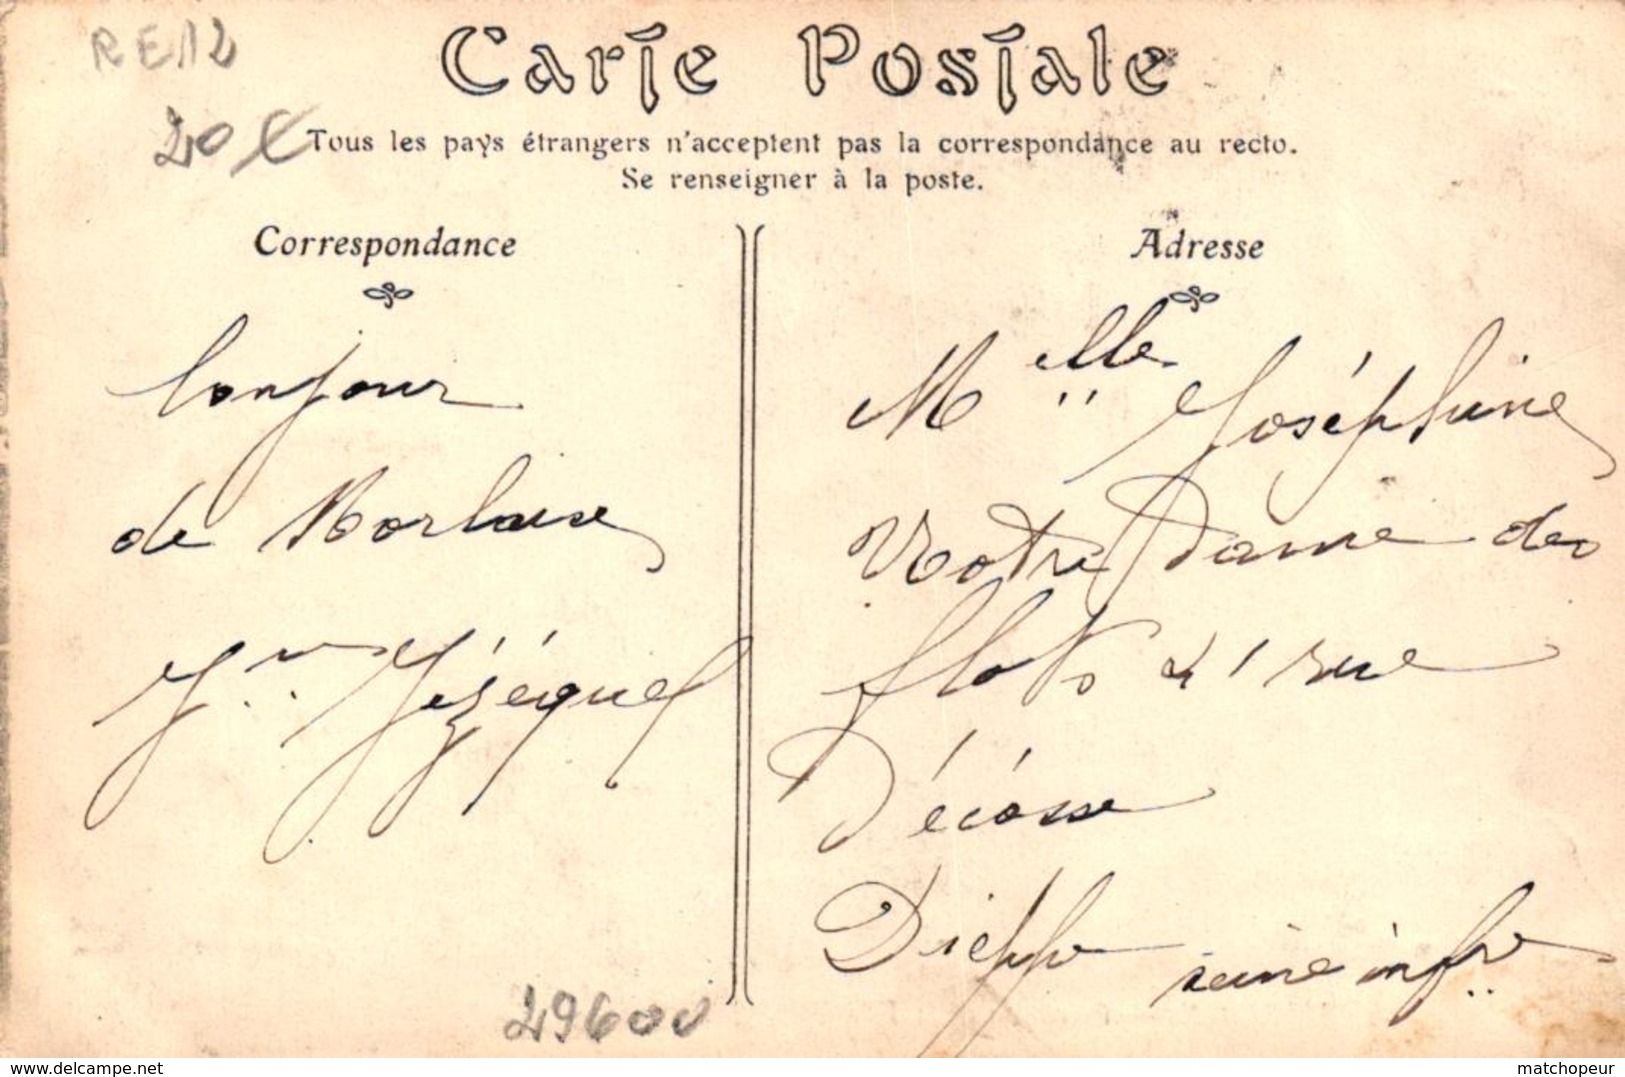 RE12
20€
Carte Postale
Tous les pays étrangers n'acceptent pas la correspondance au recto.
Se renseigner à la poste.
Correspondance
bonjour
de Morlaise
Jn Jézéquel
Adresse
Melle Joséphine
Notre Dame des
flots 41 rue
Décosse
Dieppe seine infre
29600
www.delcampe.net
matchopeur